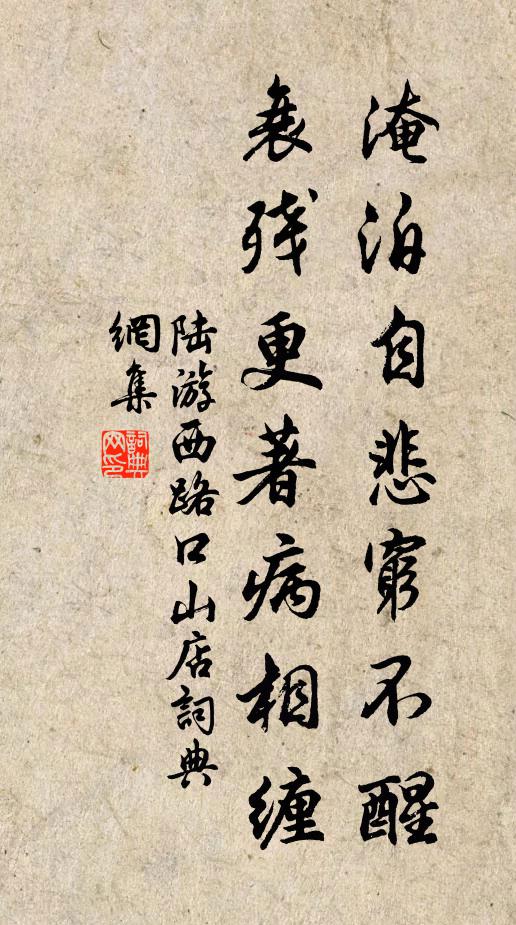 淹泊自悲窮不醒
衰残更著病相纏
陆游西路口山店詞典
網集
詞典网印